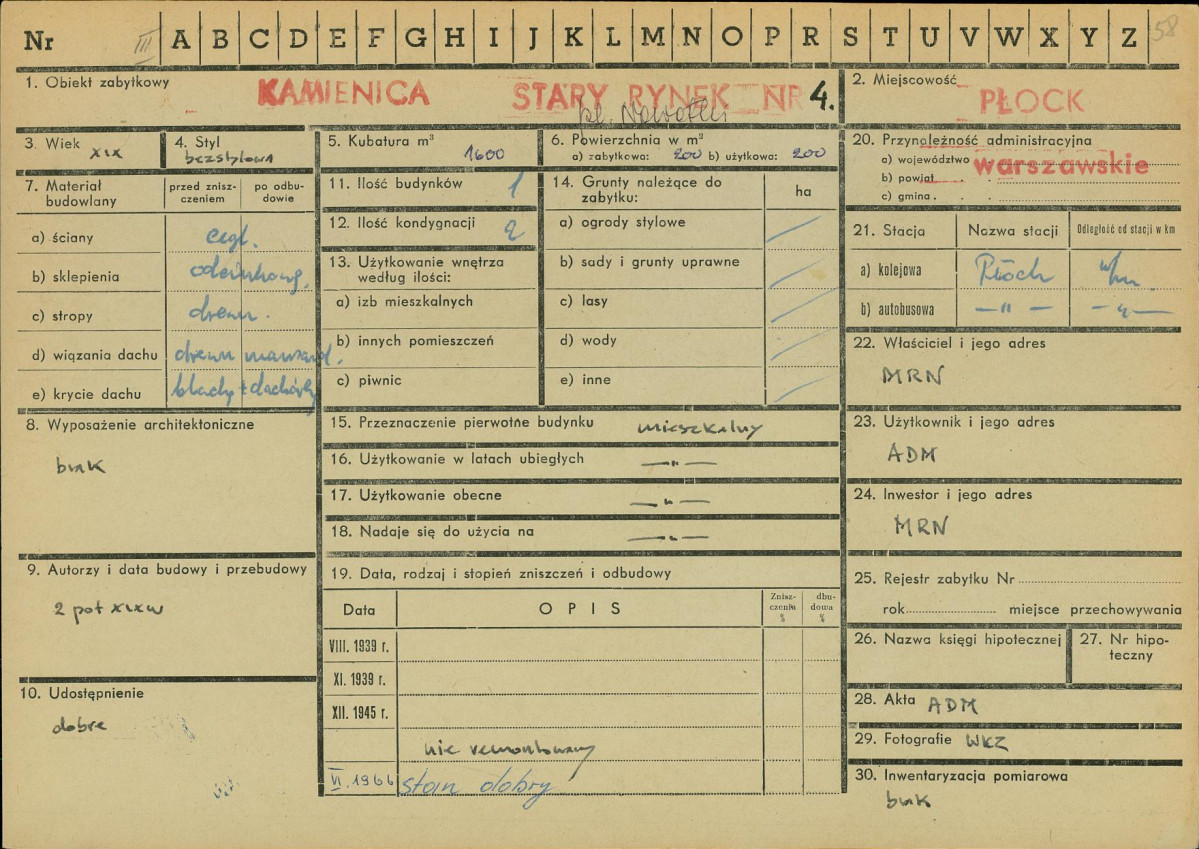 Nr III A B C D E F G H I J K L M N O P R S T U V W X Y Z 58
1. Obiekt zabytkowy
KAMIENICA STARY RYNEK NR 4.
pl. Nowotki
2. Miejscowość
PŁOCK
3. Wiek XIX
4. Styl bezstylowa
5. Kubatura m³ 1600
6. Powierzchnia w m²
a) zabytkowa: 200 b) użytkowa: 200
7. Materiał budowlany
przed zniszczeniem
po odbudowie
a) ściany cegl.
b) sklepienia
c) stropy drewn.
d) wiązania dachu drewn mansard.
e) krycie dachu blachy + dachówką
8. Wyposażenie architektoniczne
brak
9. Autorzy i data budowy i przebudowy
2 poł XIX w
10. Udostępnienie
dobre
11. Ilość budynków 1
12. Ilość kondygnacji 2
13. Użytkowanie wnętrza
według ilości:
a) izb mieszkalnych
b) innych pomieszczeń
c) piwnic
14. Grunty należące do
zabytku:
ha
a) ogrody stylowe
b) sady i grunty uprawne
c) lasy
d) wody
e) inne
15. Przeznaczenie pierwotne budynku mieszkalny
16. Użytkowanie w latach ubiegłych —"—
17. Użytkowanie obecne —"—
18. Nadaje się do użycia na —"—
19. Data, rodzaj i stopień zniszczeń i odbudowy
Data OPIS Zniszczenia % dbudowa %
VIII. 1939 r.
XI. 1939 r.
XII. 1945 r.
nie remontowany
VI. 1966 stan dobry
20. Przynależność administracyjna
a) województwo warszawskie
b) powiat
c) gmina
21. Stacja Nazwa stacji Odległość od stacji w km
a) kolejowa Płock
b) autobusowa —"— —"—
22. Właściciel i jego adres
MRN
23. Użytkownik i jego adres
ADM
24. Inwestor i jego adres
MRN
25. Rejestr zabytku Nr
rok miejsce przechowywania
26. Nazwa księgi hipotecznej
27. Nr hipoteczny
28. Akta ADM
29. Fotografie WKZ
30. Inwentaryzacja pomiarowa
brak